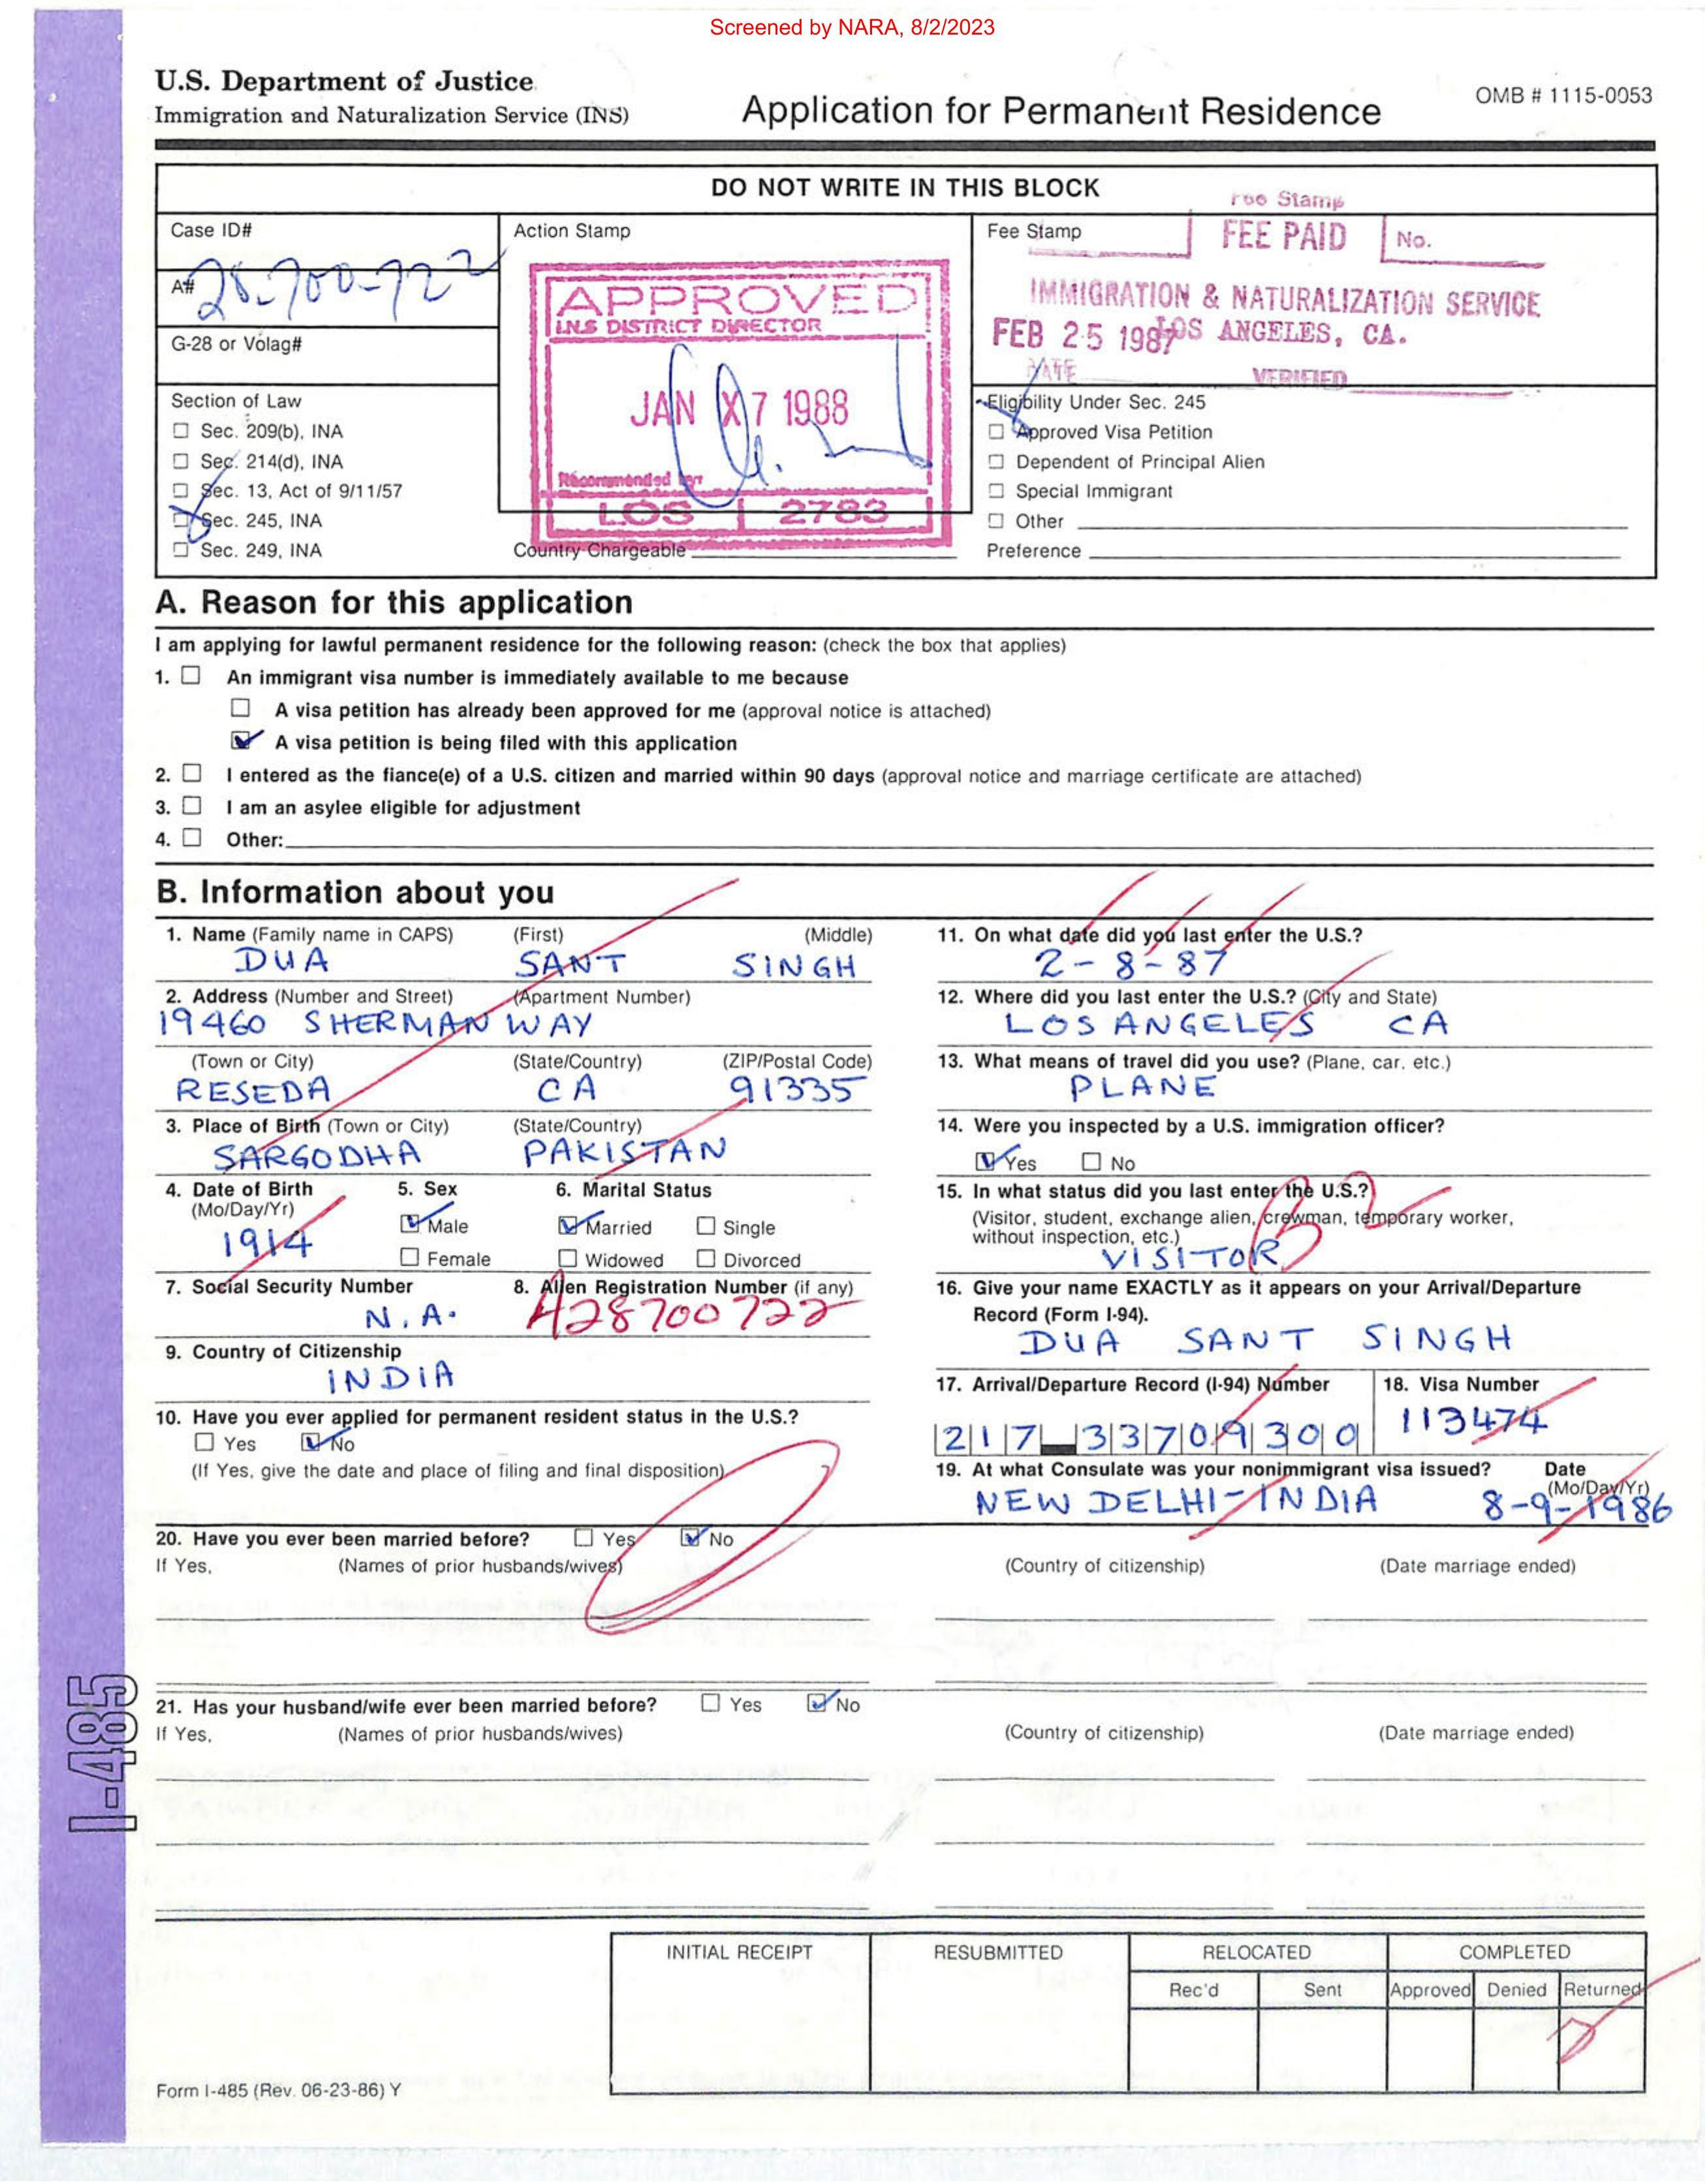 Screened by NARA, 8/2/2023
U.S. Department of Justice
Immigration and Naturalization Service (INS)
Application for Permanent Residence
OMB # 1115-0053
DO NOT WRITE IN THIS BLOCK
Case ID#
A# 28-700-722
G-28 or Volag#
Section of Law
Sec. 209(b), INA
Sec. 214(d), INA
Sec. 13, Act of 9/11/57
Sec. 245, INA
Sec. 249, INA
Action Stamp
APPROVED
I.N.S DISTRICT DIRECTOR
JAN 7 1988
Recommended by
LOS 2783
Country Chargeable
Fee Stamp
Fee Stamp
FEE PAID No.
IMMIGRATION & NATURALIZATION SERVICE
FEB 25 1987 LOS ANGELES, CA.
DATE VERIFIED
Eligibility Under Sec. 245
Approved Visa Petition
Dependent of Principal Alien
Special Immigrant
Other
Preference
A. Reason for this application
I am applying for lawful permanent residence for the following reason: (check the box that applies)
1. An immigrant visa number is immediately available to me because
A visa petition has already been approved for me (approval notice is attached)
A visa petition is being filed with this application
2. I entered as the fiance(e) of a U.S. citizen and married within 90 days (approval notice and marriage certificate are attached)
3. I am an asylee eligible for adjustment
4. Other:
B. Information about you
1. Name (Family name in CAPS) (First) (Middle)
DUA SANT SINGH
2. Address (Number and Street) (Apartment Number)
19460 SHERMAN WAY
(Town or City) (State/Country) (ZIP/Postal Code)
RESEDA CA 91335
3. Place of Birth (Town or City) (State/Country)
SARGODHA PAKISTAN
4. Date of Birth (Mo/Day/Yr)
1914
5. Sex
Male
Female
6. Marital Status
Married Single
Widowed Divorced
7. Social Security Number
N.A.
8. Alien Registration Number (if any)
A28700722
9. Country of Citizenship
INDIA
10. Have you ever applied for permanent resident status in the U.S.?
Yes No
(If Yes, give the date and place of filing and final disposition)
11. On what date did you last enter the U.S.?
2-8-87
12. Where did you last enter the U.S.? (City and State)
LOS ANGELES CA
13. What means of travel did you use? (Plane, car, etc.)
PLANE
14. Were you inspected by a U.S. immigration officer?
Yes No
15. In what status did you last enter the U.S.?
(Visitor, student, exchange alien, crewman, temporary worker,
without inspection, etc.)
VISITOR B2
16. Give your name EXACTLY as it appears on your Arrival/Departure
Record (Form I-94).
DUA SANT SINGH
17. Arrival/Departure Record (I-94) Number
217 33709300
18. Visa Number
113474
19. At what Consulate was your nonimmigrant visa issued? Date
(Mo/Day/Yr)
NEW DELHI-INDIA 8-9-1986
20. Have you ever been married before? Yes No
If Yes, (Names of prior husbands/wives) (Country of citizenship) (Date marriage ended)
21. Has your husband/wife ever been married before? Yes No
If Yes, (Names of prior husbands/wives) (Country of citizenship) (Date marriage ended)
I-485
INITIAL RECEIPT RESUBMITTED RELOCATED COMPLETED
Rec'd Sent Approved Denied Returned
Form I-485 (Rev. 06-23-86) Y